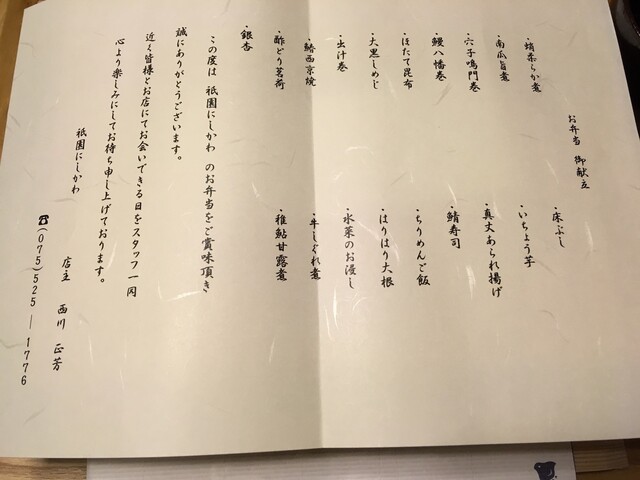 お弁当　御献立
・蛸柔らか煮
・南瓜旨煮
・穴子鳴門巻
・鰻八幡巻
・ほたて昆布
・大黒しめじ
・出汁巻
・鰆西京焼
・酢どり茗荷
・銀杏
・床ぶし
・いちょう芋
・真丈あられ揚げ
・鯖寿司
・ちりめんご飯
・はりはり大根
・水菜のお浸し
・牛しぐれ煮
・稚鮎甘露煮
この度は 祇園にしかわ のお弁当をご賞味頂き
誠にありがとうございます。
近く皆様とお店にてお会いできる日をスタッフ一同
心より楽しみにしてお待ち申し上げております。
祇園にしかわ
店主　西川　正芳
☎(075)525―1776